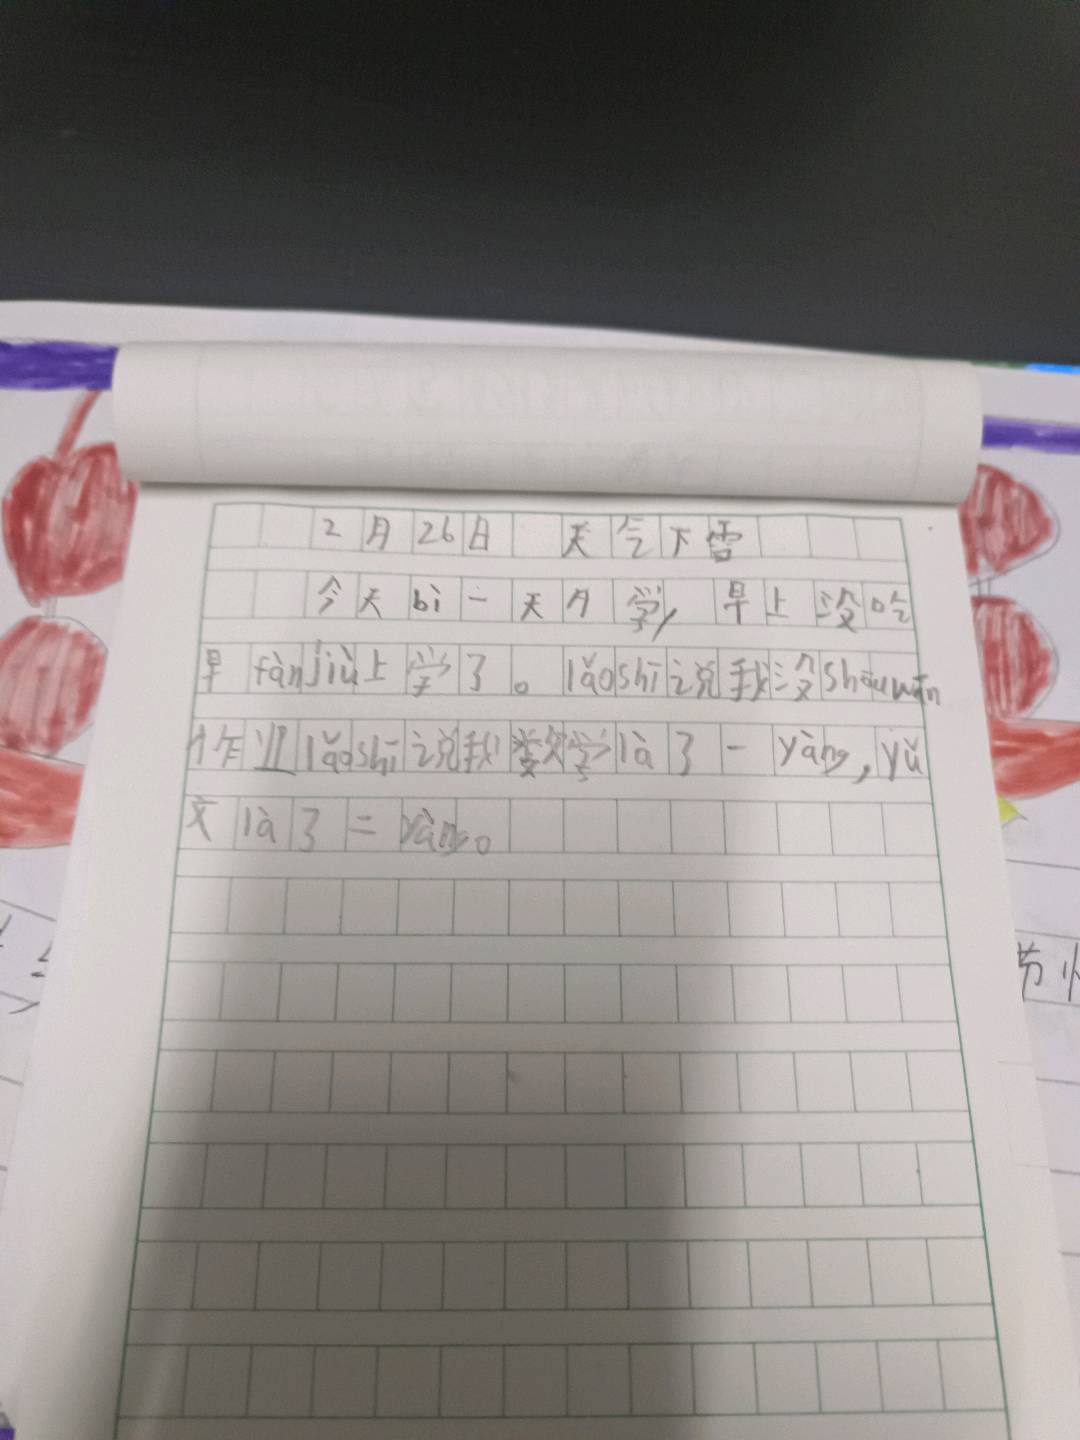 2月26日 天气下雪
今天bì一天月学,早上没吃
早fànjiù上学了。lǎoshī说我没shōuwán
作业lǎoshī说我数学là了一yàng,yǔ
文là了二yàng。